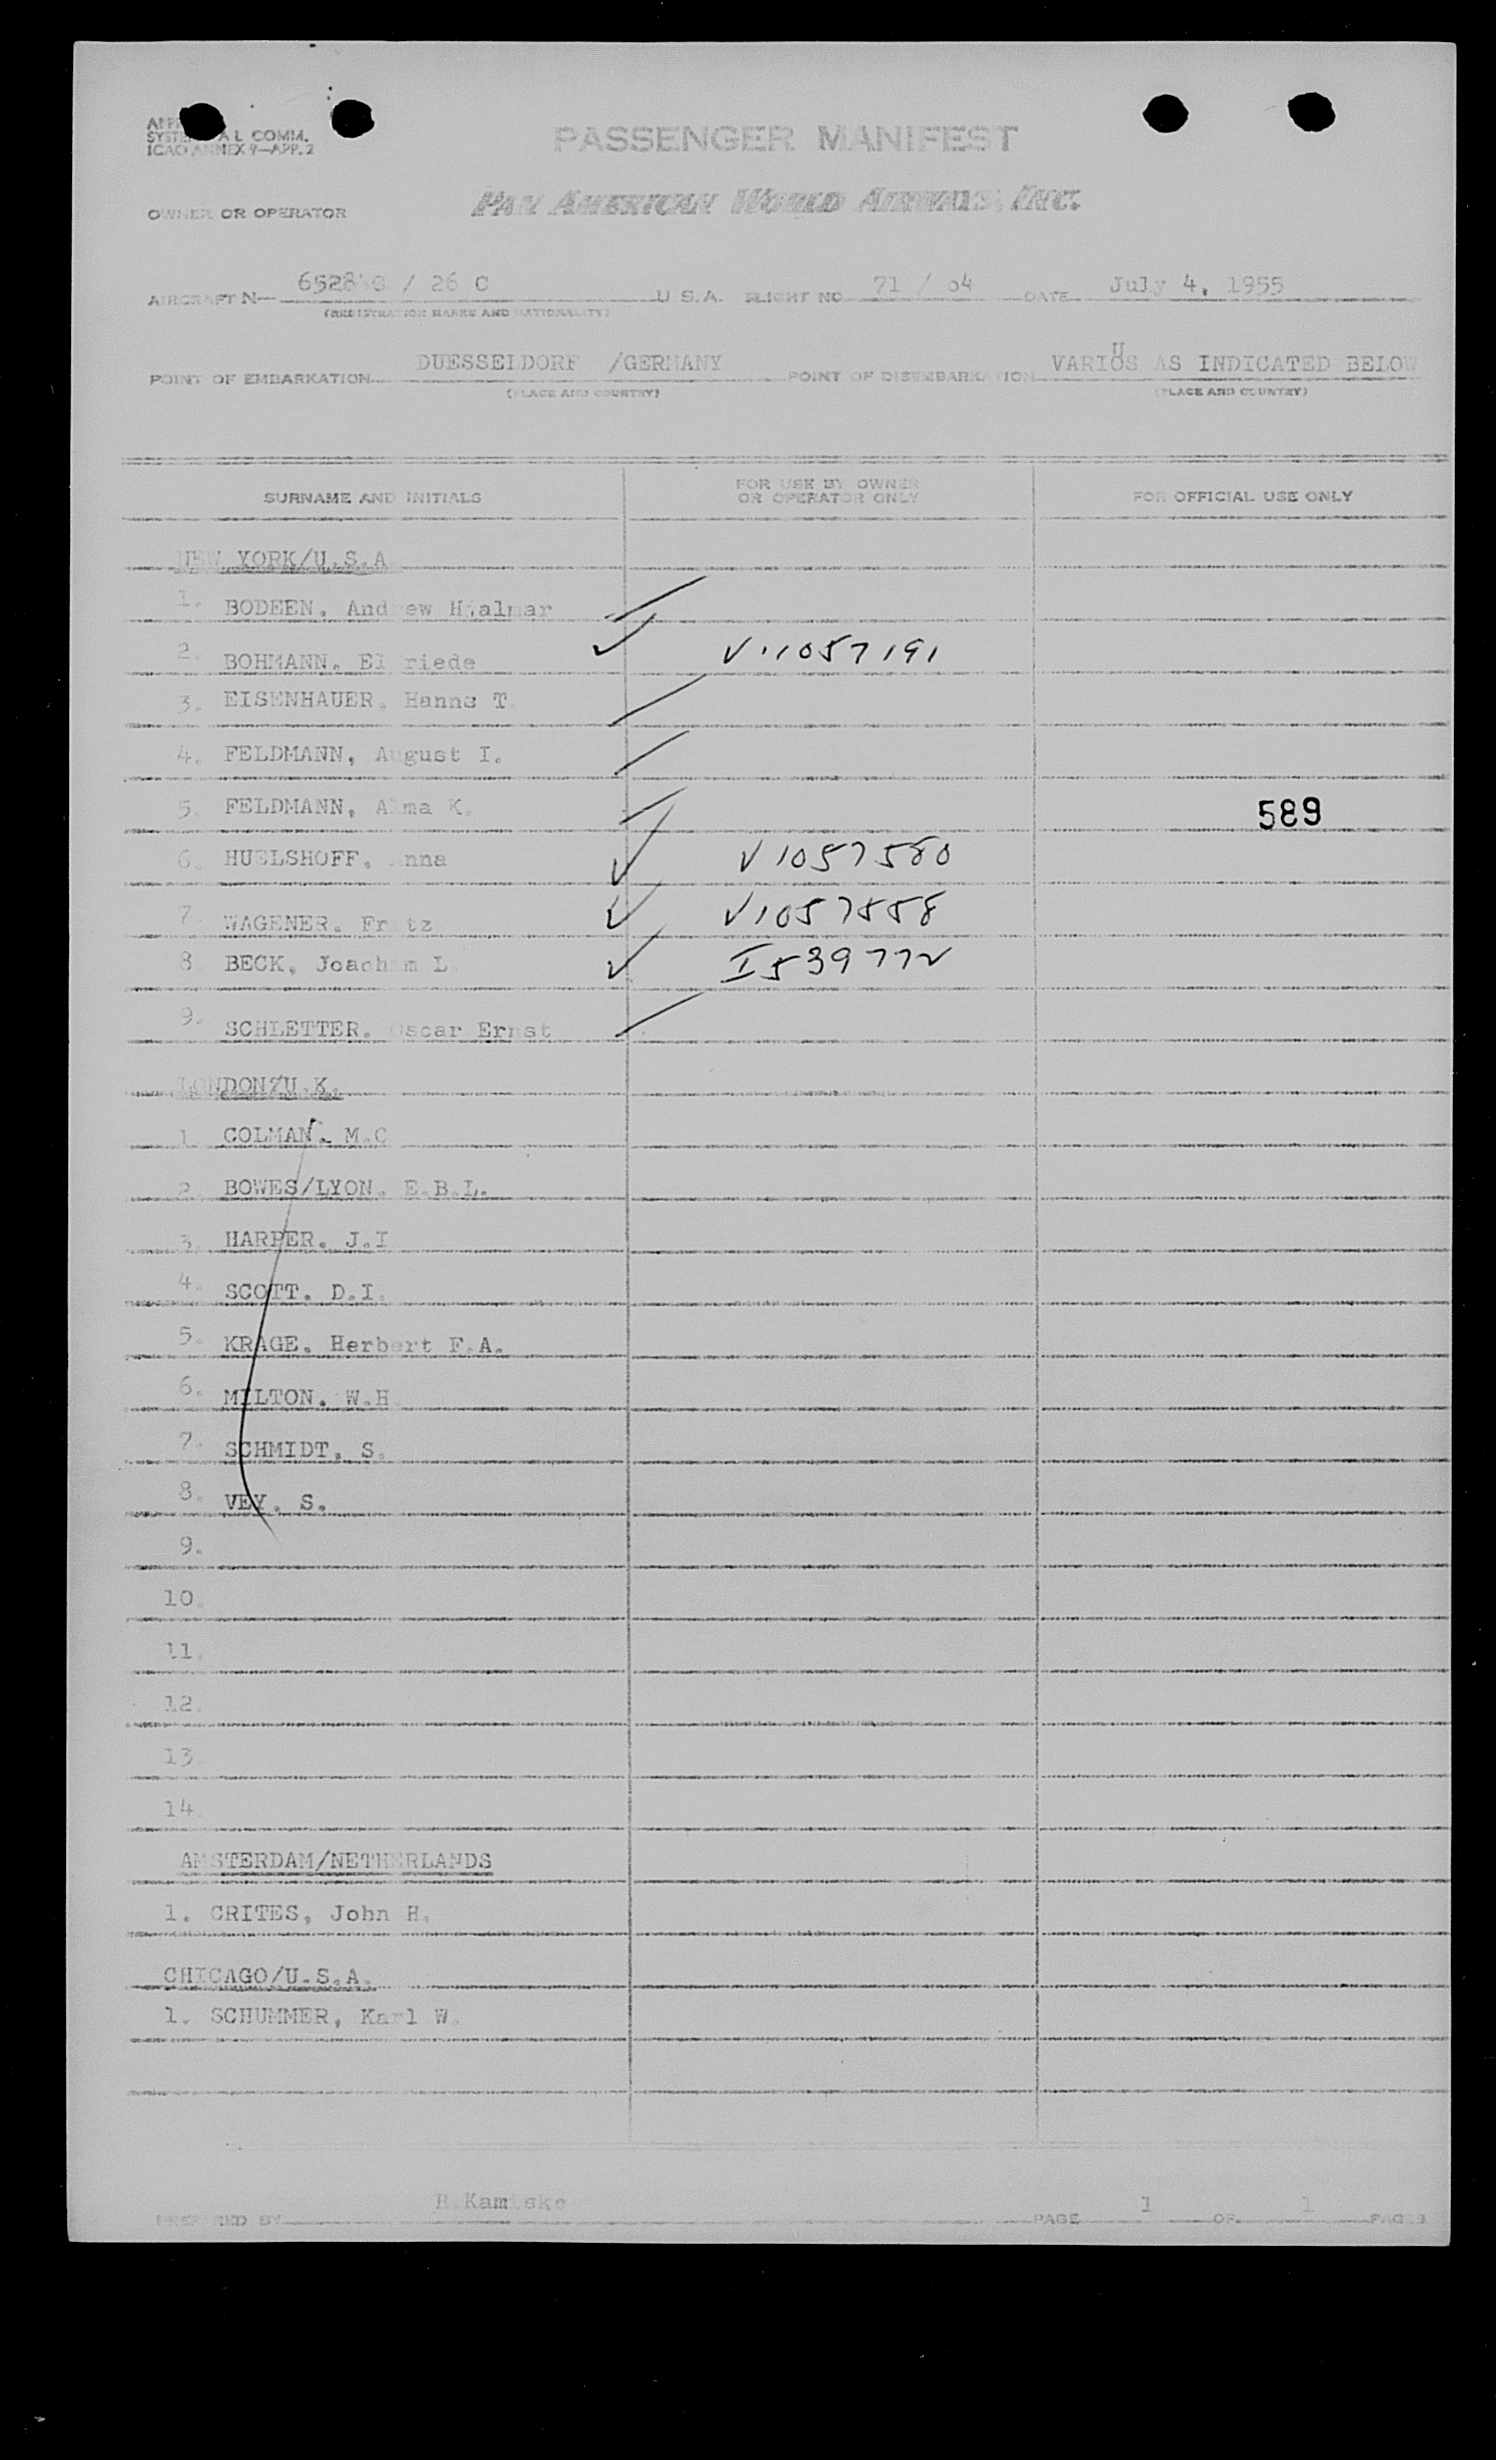 SYSTE AL COMM.
ICAO ANNEX 9—APP. 2
PASSENGER MANIFEST
OWNER OR OPERATOR
PAN AMERICAN WORLD AIRWAYS, INC.
AIRCRAFT N— / 26 C U. S. A. FLIGHT NO. 71 / 04 DATE July 4, 1955
(REGISTRATION MARKS AND NATIONALITY)
POINT OF EMBARKATION DUESSELDORF /GERMANY POINT OF DISEMBARKATION VARIOUS AS INDICATED BELOW
(PLACE AND COUNTRY) (PLACE AND COUNTRY)
SURNAME AND INITIALS FOR USE BY OWNER OR OPERATOR ONLY FOR OFFICIAL USE ONLY
NEW YORK/U.S.A
1. BODEEN, Andrew Hjalmar
2. BOHMANN, Elfriede V.11057191
3. EISENHAUER, Hanns T.
4. FELDMANN, August I.
5. FELDMANN, Alma K. 589
6. HUELSHOFF, Anna V1057580
7. WAGENER, Fritz V1057558
8. BECK, Joachim L. I539772
9. SCHLETTER, Oscar Ernst
LONDON/U.K.
1. COLMAN, M.C
2. BOWES/LYON, E.B.L.
3. HARPER, J.I
4. SCOTT, D.I.
5. KRAGE, Herbert F.A.
6. MILTON, W.H.
7. SCHMIDT, S.
8. VEY, S.
9.
10.
11.
12.
13
14.
AMSTERDAM/NETHERLANDS
1. CRITES, John H.
CHICAGO/U.S.A.
1. SCHUMMER, Karl W.
PREPARED BY PAGE 1 OF 1 PAGES